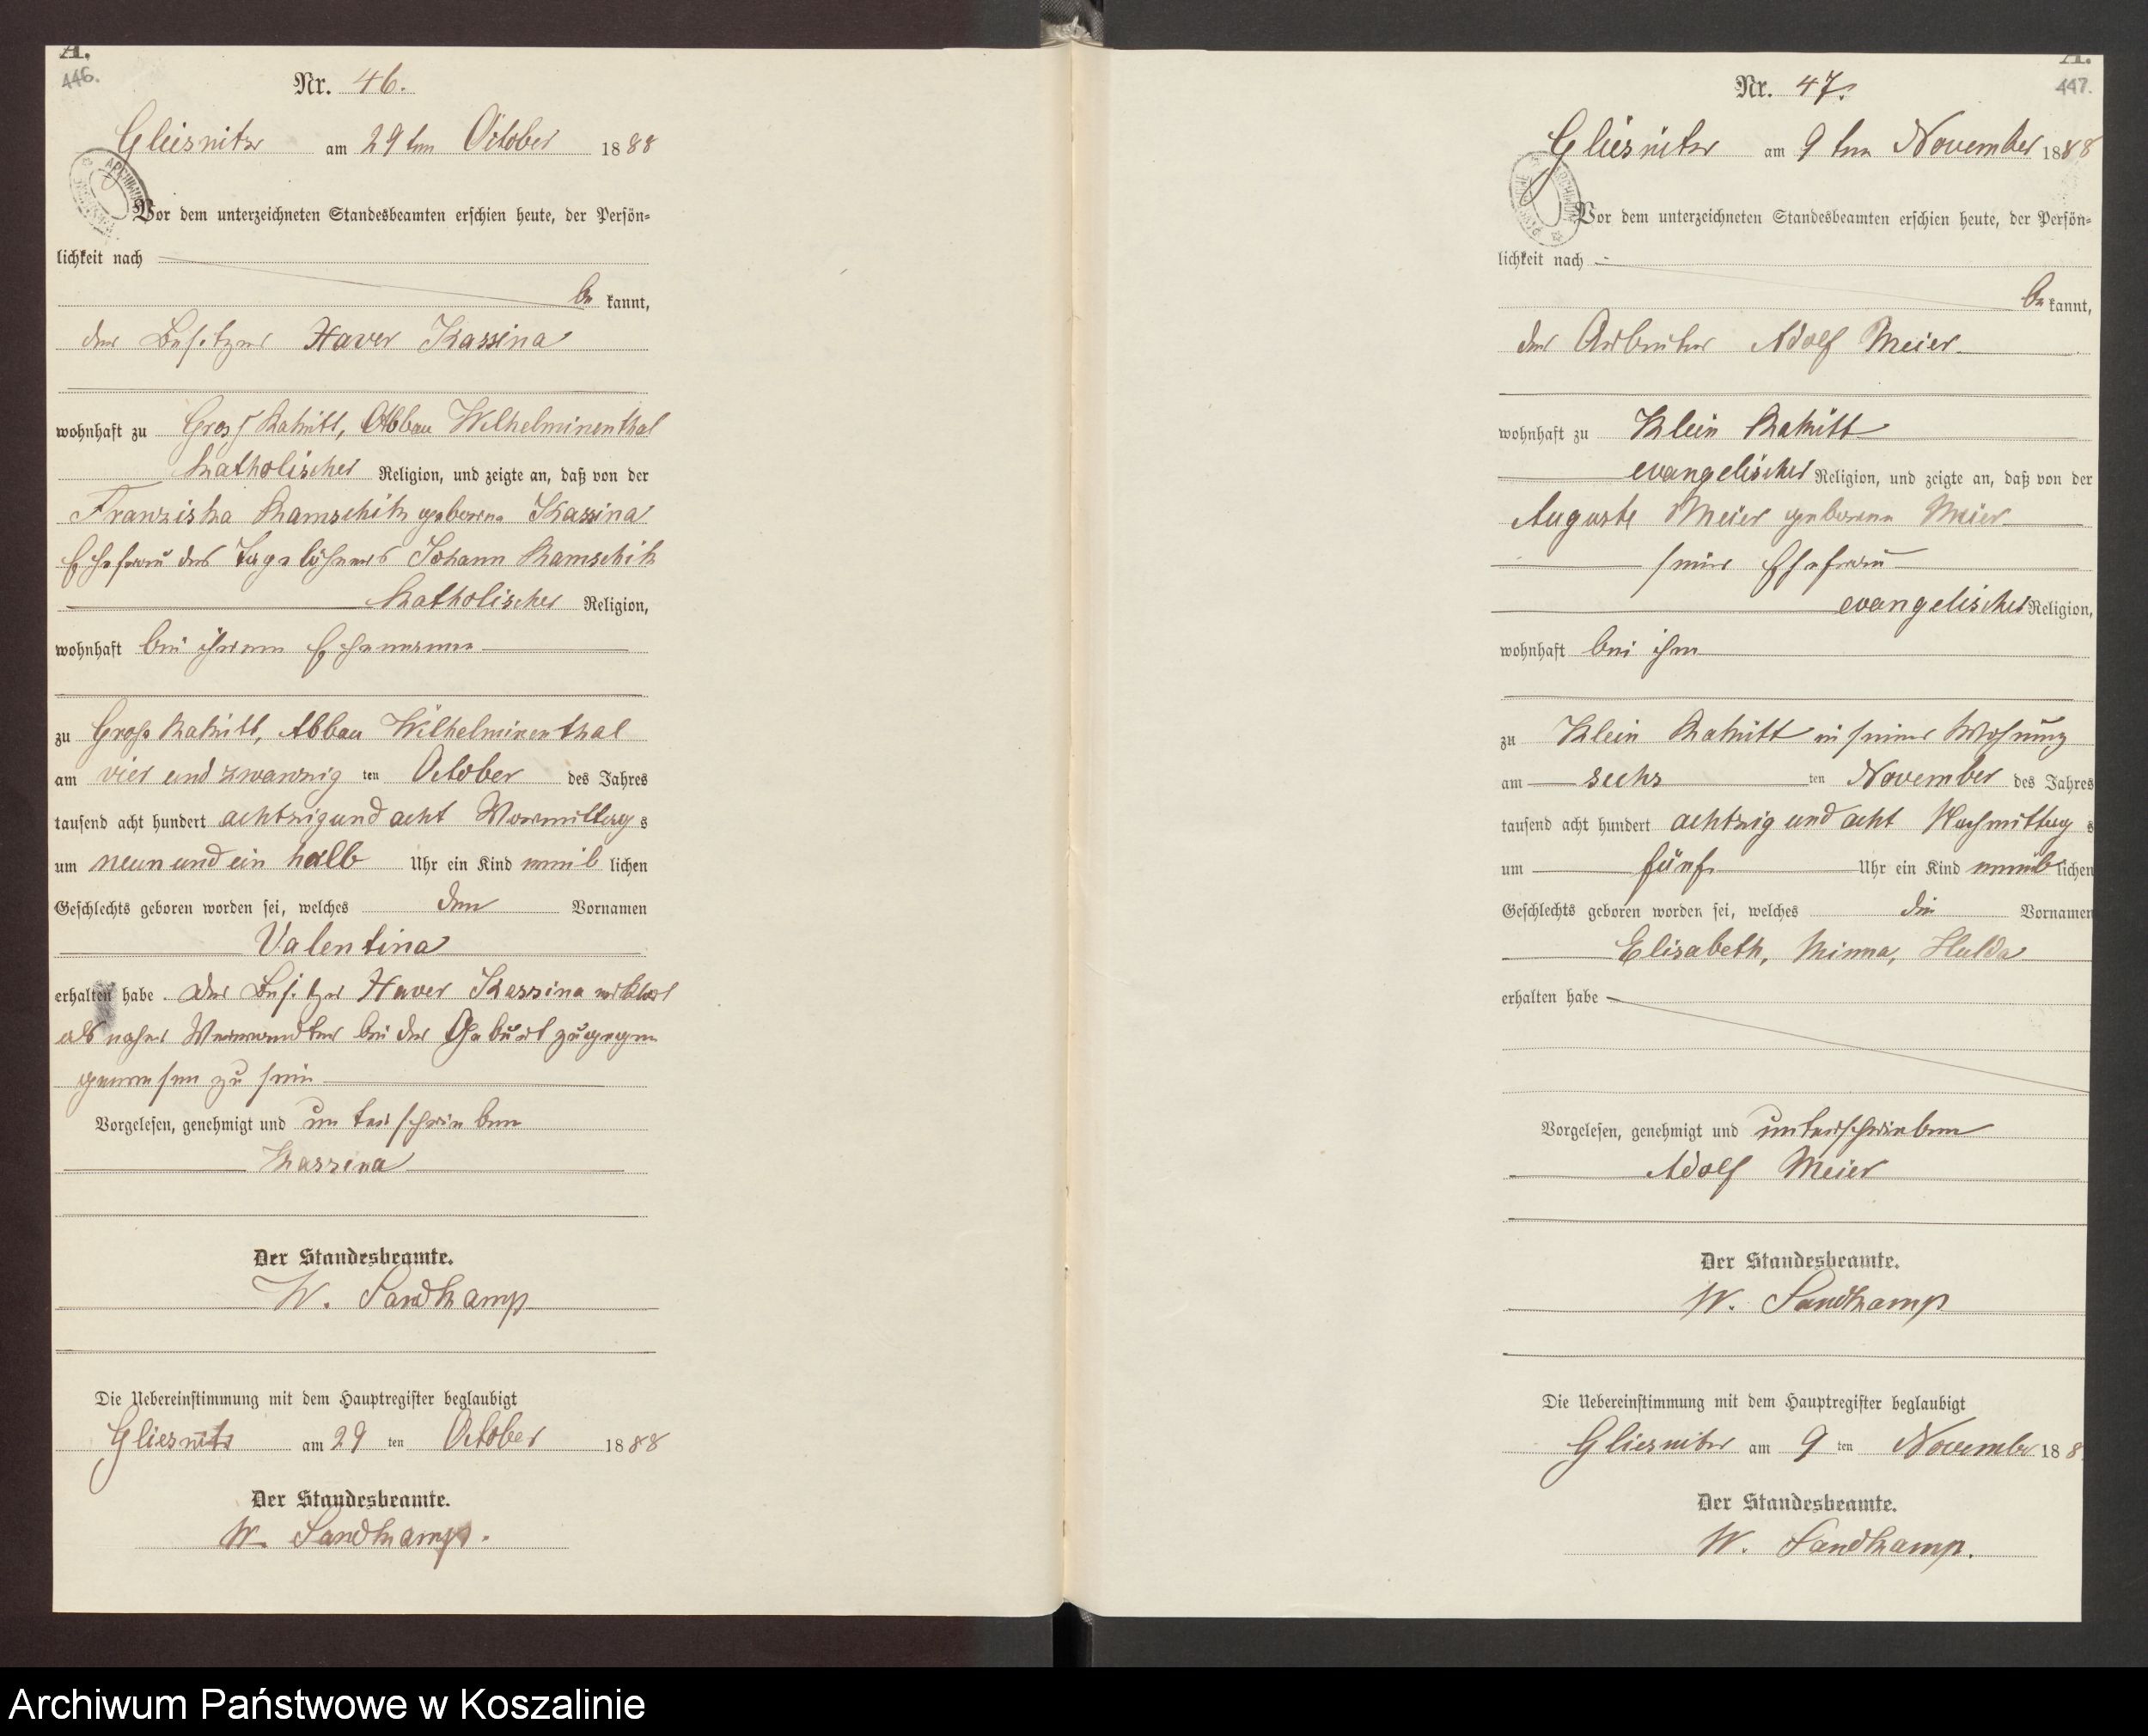 A.
446.
Nr. 46.
Gliesnitz am 29ten October 1888
Vor dem unterzeichneten Standesbeamten erschien heute, der Persön-
lichkeit nach
be kannt,
der Besitzer Xaver Kassina
wohnhaft zu Gross Rakitt, Abbau Wilhelminenthal
katholischer Religion, und zeigte an, daß von der
Franziska Ramschik geborene Kassina
Ehefrau des Tagelöhners Johann Ramschik
katholischer Religion,
wohnhaft bei ihrem Ehemanne
zu Gross Rakitt, Abbau Wilhelminenthal
am vier und zwanzig ten October des Jahres
tausend acht hundert achtzig und acht Vormittag s
um neun und ein halb Uhr ein Kind weib lichen
Geschlechts geboren worden sei, welches den Vornamen
Valentina
erhalten habe. Der Besitzer Xaver Kassina erklärt
als naher Verwandter bei der Geburt zugegen
gewesen zu sein
Vorgelesen, genehmigt und unterschrieben
Kassina
Der Standesbeamte.
W. Sandkamp
Die Uebereinstimmung mit dem Hauptregister beglaubigt
Gliesnitz am 29 ten October 1888
Der Standesbeamte.
W. Sandkamp.
A.
447.
Nr. 47.
Gliesnitz am 9ten November 1888
Vor dem unterzeichneten Standesbeamten erschien heute, der Persön-
lichkeit nach
be kannt,
der Arbeiter Adolf Meier
wohnhaft zu Klein Rakitt
evangelischer Religion, und zeigte an, daß von der
Auguste Meier geborene Meier
seiner Ehefrau
evangelischer Religion,
wohnhaft bei ihm
zu Klein Rakitt in seiner Wohnung
am sechs ten November des Jahres
tausend acht hundert achtzig und acht Nachmittag s
um fünf Uhr ein Kind weib lichen
Geschlechts geboren worden sei, welches die Vornamen
Elisabeth, Minna, Hulda
erhalten habe
Vorgelesen, genehmigt und unterschrieben
Adolf Meier
Der Standesbeamte.
W. Sandkamp
Die Uebereinstimmung mit dem Hauptregister beglaubigt
Gliesnitz am 9 ten November 188
Der Standesbeamte.
W. Sandkamp.
Archiwum Państwowe w Koszalinie